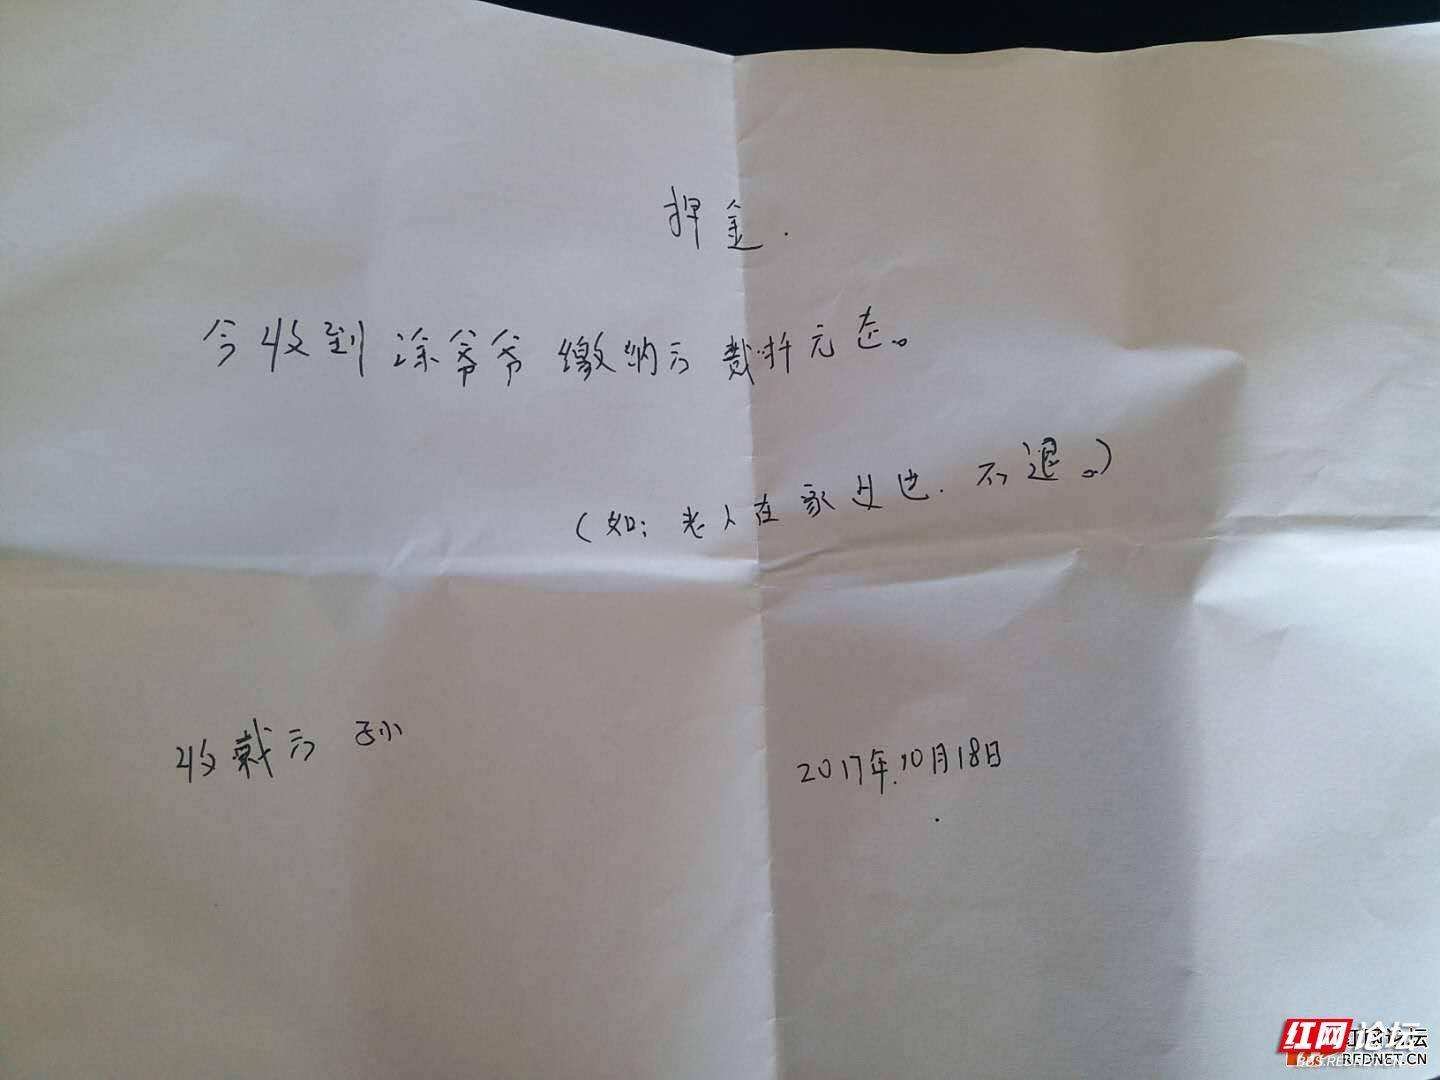 押金.
今收到涂爷爷缴纳云贰仟元整。
(如:老人在家过世.不退。)
收款云 孙
2017年.10月18日
红网论坛
REDNET.CN